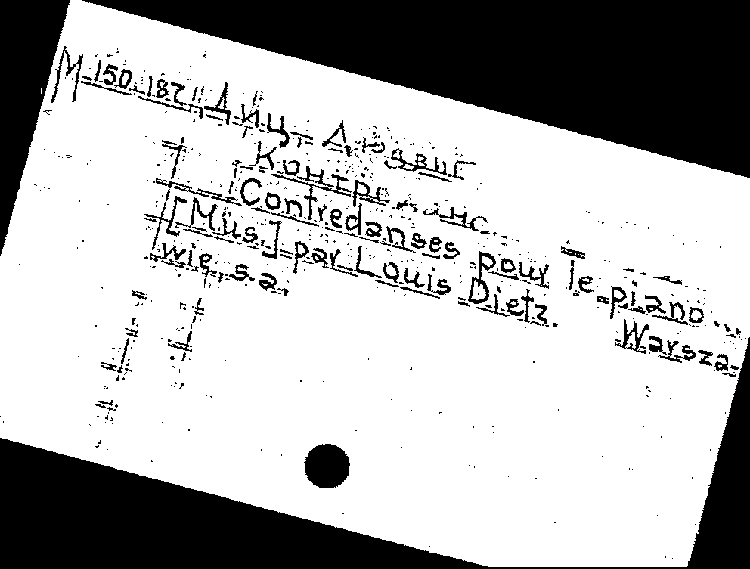 М 150.187 Диц, Людвиг
Контрданс.
Contredanses pour le piano...
[Mus.] par Louis Dietz. Warsza-
wie, s.a.